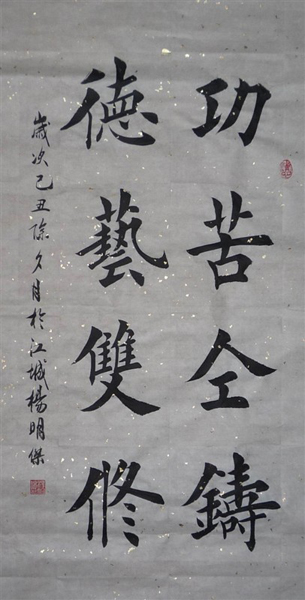 功苦仝鑄
德藝雙修
歲次己丑除夕月於江城楊明傑